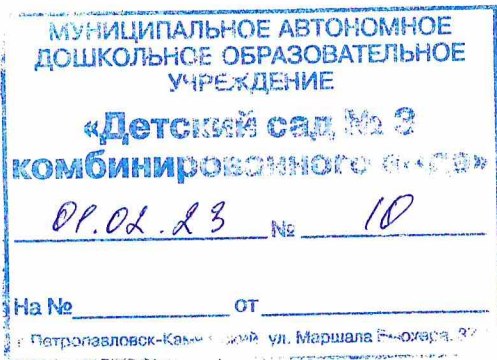 МУНИЦИПАЛЬНОЕ АВТОНОМНОЕ
ДОШКОЛЬНОЕ ОБРАЗОВАТЕЛЬНОЕ
УЧРЕЖДЕНИЕ
«Детский сад № 3
комбинированного вида»
01.02.23 № 10
На № от
г. Петропавловск-Камчатский, ул. Маршала Блюхера, 37